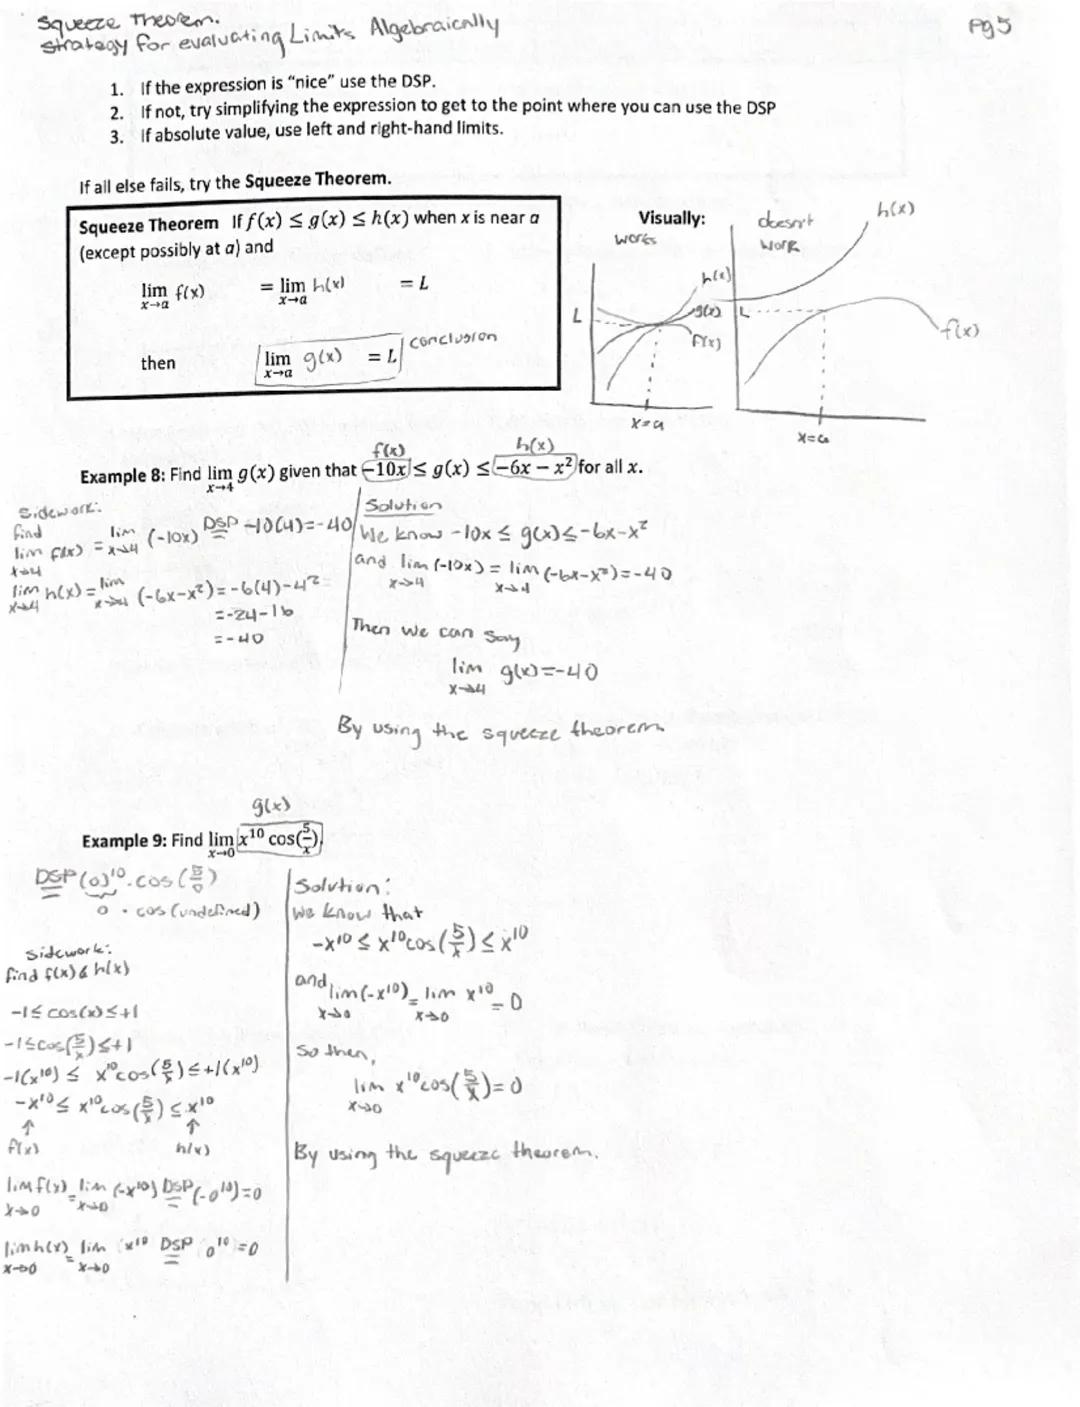 Squeeze Theorem.
Pg 5
strategy for evaluating Limits Algebraically
1. If the expression is "nice" use the DSP.
2. If not, try simplifying the expression to get to the point where you can use the DSP
3. If absolute value, use left and right-hand limits.
If all else fails, try the Squeeze Theorem.
Squeeze Theorem If f(x) ≤ g(x) ≤ h(x) when x is near a
(except possibly at a) and
lim f(x) = lim h(x) = L
x→a x→a
then lim g(x) = L conclusion
x→a
Visually:
works
h(x)
g(x)
f(x)
L
x=a
doesn't
work
h(x)
L
f(x)
x=a
f(x) h(x)
Example 8: Find lim g(x) given that -10x ≤ g(x) ≤ -6x - x² for all x.
x→4
Sidework:
find
lim f(x) = lim (-10x) DSP = -10(4)=-40
x→4 x→4
lim h(x) = lim (-6x-x²) = -6(4)-4²
x→4 x→4
=-24-16
=-40
Solution
We know -10x ≤ g(x) ≤ -6x-x²
and lim (-10x) = lim (-6x-x²)=-40
x→4 x→4
Then we can say
lim g(x)=-40
x→4
By using the squeeze theorem.
g(x)
Example 9: Find lim x¹⁰ cos(5/x).
x→0
DSP (0)¹⁰ · cos(5/0)
=
0 · cos(undefined)
sidework:
find f(x) & h(x)
-1 ≤ cos(x) ≤ +1
-1 ≤ cos(5/x) ≤ +1
-1(x¹⁰) ≤ x¹⁰cos(5/x) ≤ +1(x¹⁰)
-x¹⁰ ≤ x¹⁰cos(5/x) ≤ x¹⁰
↑ ↑
f(x) h(x)
lim f(x) = lim (-x¹⁰) DSP = (-0¹⁰)=0
x→0 x→0
lim h(x) = lim x¹⁰ DSP = 0¹⁰ =0
x→0 x→0
Solution:
We know that
-x¹⁰ ≤ x¹⁰cos(5/x) ≤ x¹⁰
and lim(-x¹⁰) = lim x¹⁰ = 0
x→0 x→0
So then,
lim x¹⁰cos(5/x)=0
x→0
By using the squeeze theorem.